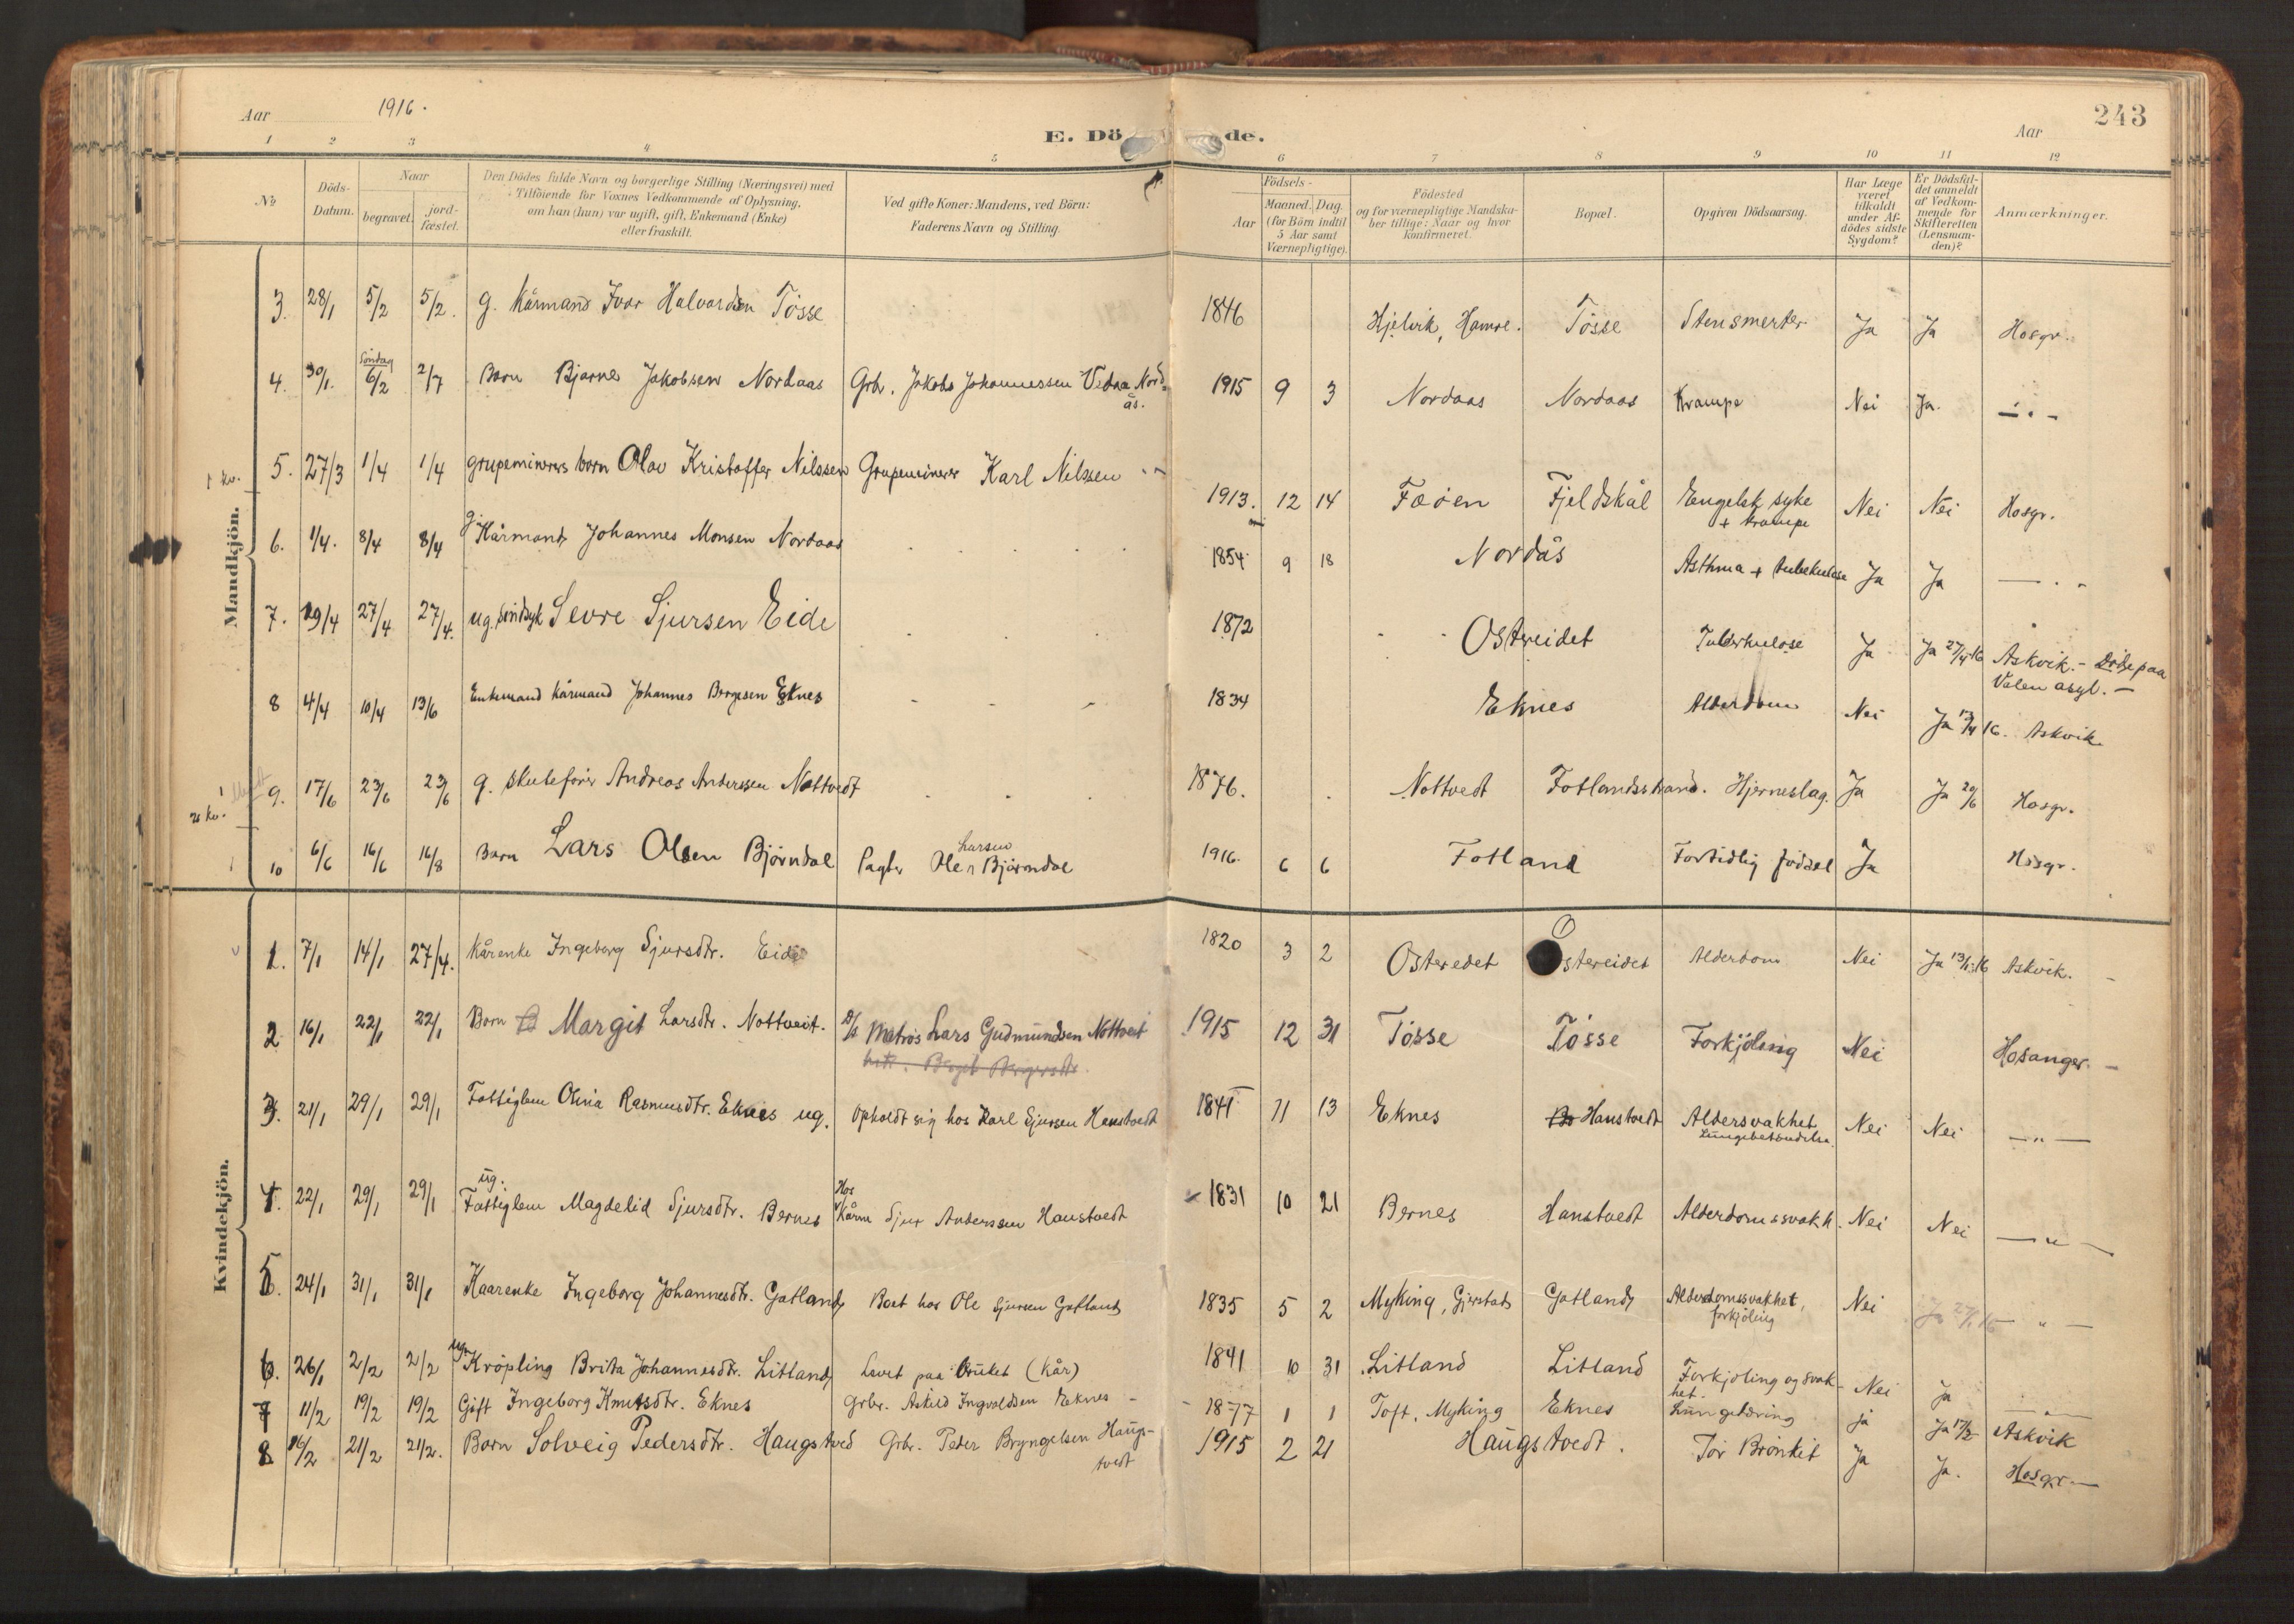 Aar 1916.
E. Dö de.
Aar
243
1 2 3 4 5 6 7 8 9 10 11 12
No
Döds-Datum.
Naar
begravet.
jord-fæstet.
Den Dödes fulde Navn og borgerlige Stilling (Næringsvei) med
Tilföiende for Voxnes Vedkommende af Oplysning,
om han (hun) var ugift, gift, Enkemand (Enke)
eller fraskilt.
Ved gifte Koner: Mandens, ved Börn:
Faderens Navn og Stilling.
Födsels-
Aar
Maaned. Dag.
(for Börn indtil
5 Aar samt
Værnepligtige).
Födested
og for værnepligtige Mandska-
ber tillige: Naar og hvor
konfirmeret.
Bopæl.
Opgiven Dödsaarsag.
Har Læge
været
tilkaldt
under Af-
dödes sidste
Sygdom?
Er Dödsfal-
det anmeldt
af Vedkom-
mende for
Skifteretten
(Lensman-
den)?
Anmærkninger.
Mandkjön.
3. 28/1 5/2 5/2. g. Kårmand Ivar Halvardsen Tösse 1846 Hjelvik, Hamre. Tösse Stensmerter Ja Ja Hosgr.
4. 30/1. Söndag 6/2 2/7 Barn Bjarne Jakobsen Nordaas Grbr. Jakob Johannessen Vedaa Nord-
ås. 1915 9 3 Nordaas Nordaas Krampe Nei Ja. — . -
1 kv.
5. 27/3 1/4 1/4 grupeminerers barn Olav Kristoffer Nilssen Grupeminerer Karl Nilssen 1913. 12 14 Fæøen Fjeldskål Engelsk syke
+ krampe Nei Nei Hosgr.
6. 1/4. 8/4 8/4 g. Kårmand Johannes Monsen Nordaas 1854 9 18 Nordås Asthma + tuberkulose Ja Ja — . -
7. 19/4 27/4 27/4. ug. sindsyk Sevre Sjursen Eide 1872 Ostereidet Tuberkulose Ja Ja 27/4 16 Askvik. - Döde paa
Valen asyl. -
8 4/4 10/4 13/6 Enkemand kårmand Johannes Børgesen Eknes 1834 Eknes Alderdom Nei Ja 12/4 16. Askvik
9. 17/6 23/6 23/6 g. skutefører Andreas Anderssen Nottvedt 1876. Nottvedt Fotlandsstrand. Hjerneslag. Ja Ja 20/6 Hosgr.
10 6/6 16/6 16/8 Barn Lars Olsen Bjørndal Pagter Ole Larsen Bjørndal 1916. 6 6 Fotland Fortidlig födsel Ja Hosgr.
Kvindekjön.
1. 7/1 14/1 27/4. Kårenke Ingeborg Sjursdtr. Eide 1820 3 2 Osteredet Ostereidet Alderdom Nei Ja 13/1 16 Askvik. -
2 16/1 22/1 22/1 Barn Margit Larsdtr. Nottveit. Matros Lars Gudmundsen Nottveit 1915 12 31 Tösse Tösse Forkjöling Nei Hosanger. -
3. 21/1 29/1 29/1 Fattiglem Olina Rasmusdtr. Eknes ug. Opholdt sig hos Karl Sjursen Hanstvedt 1841 11 13 Eknes Hanstvedt Aldersvakhet
Lungebetændelse Nei Nei — " —
4. 22/1 29/1 29/1 ug. Fattiglem Magdelid Sjursdtr. Bernes Hos
Kårm Sjur Anderssen Hanstvedt 1831 10 21 Bernes Hanstvedt Alderdomssvakh. Nei Nei — " —
5. 24/1 31/1 31/1 Kaarenke Ingeborg Johannesdtr. Gatland Boet hos Ole Sjursen Gatland 1835 5 2 Myking, Gjerstad Gatland Alderdomssvakhet,
forkjöling Nei Ja 27/1 16 - " -
6. 26/1 2/2 2/2 ug. Kröpling Brita Johannesdtr. Litland Levet paa bruket (kår) 1841 10 31 Litland Litland Forkjöling og svak-
het. Nei Ja
7 11/2 19/2 19/2 Gift Ingeborg Knutsdtr. Eknes Grbr. Askild Ingvaldsen Eknes - 1877 1 1 Toft, Myking Eknes Lungetæring ja Ja 17/2 Askvik
8 16/2 21/2 21/2. Barn Solveig Pedersdtr. Haugstved Grbr. Peder Bryngelsen Haugs-
tvedt 1915 2 21 Haugstvedt. Tör Bronkit Ja Ja. Hosgr.—